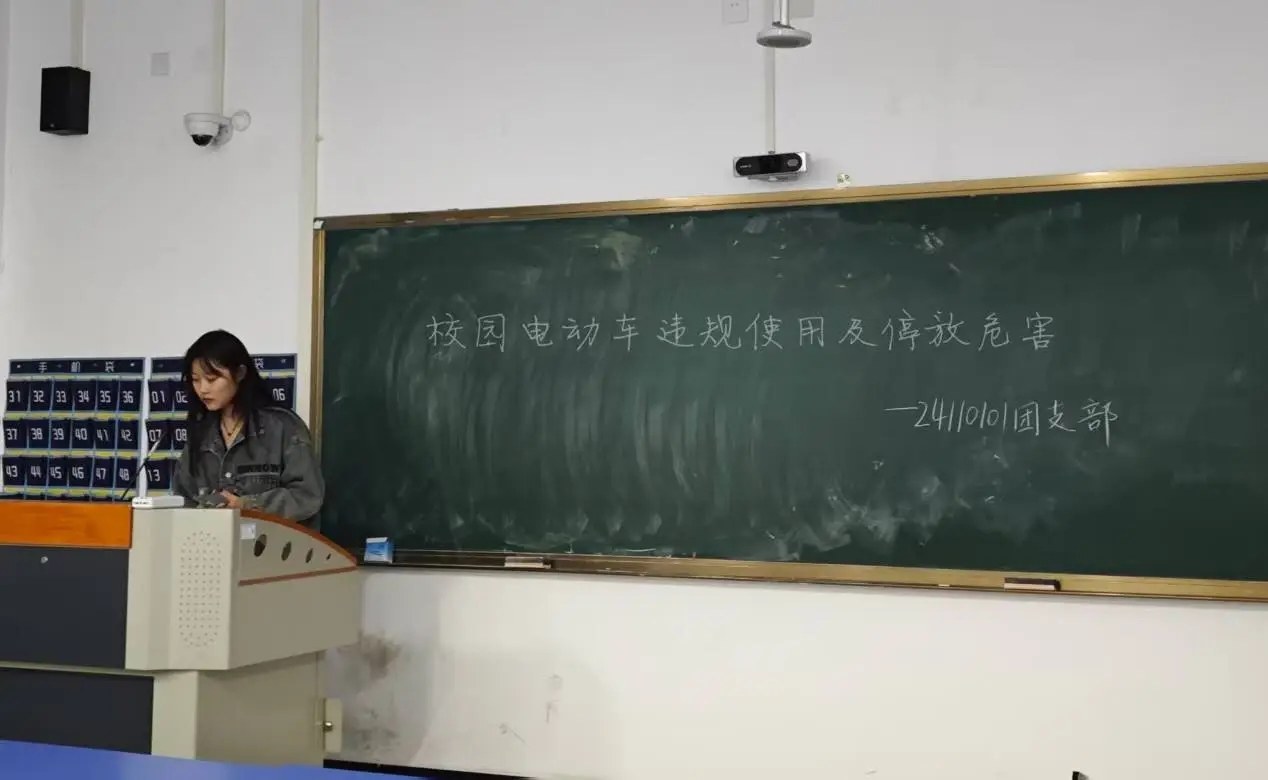 校园电动车违规使用及停放危害
—24110101团支部
手机袋
31 32 33 34 35 36
37 38 39 40 41 42
43 44 45 46 47 48
袋
01 02 06
07 08
13